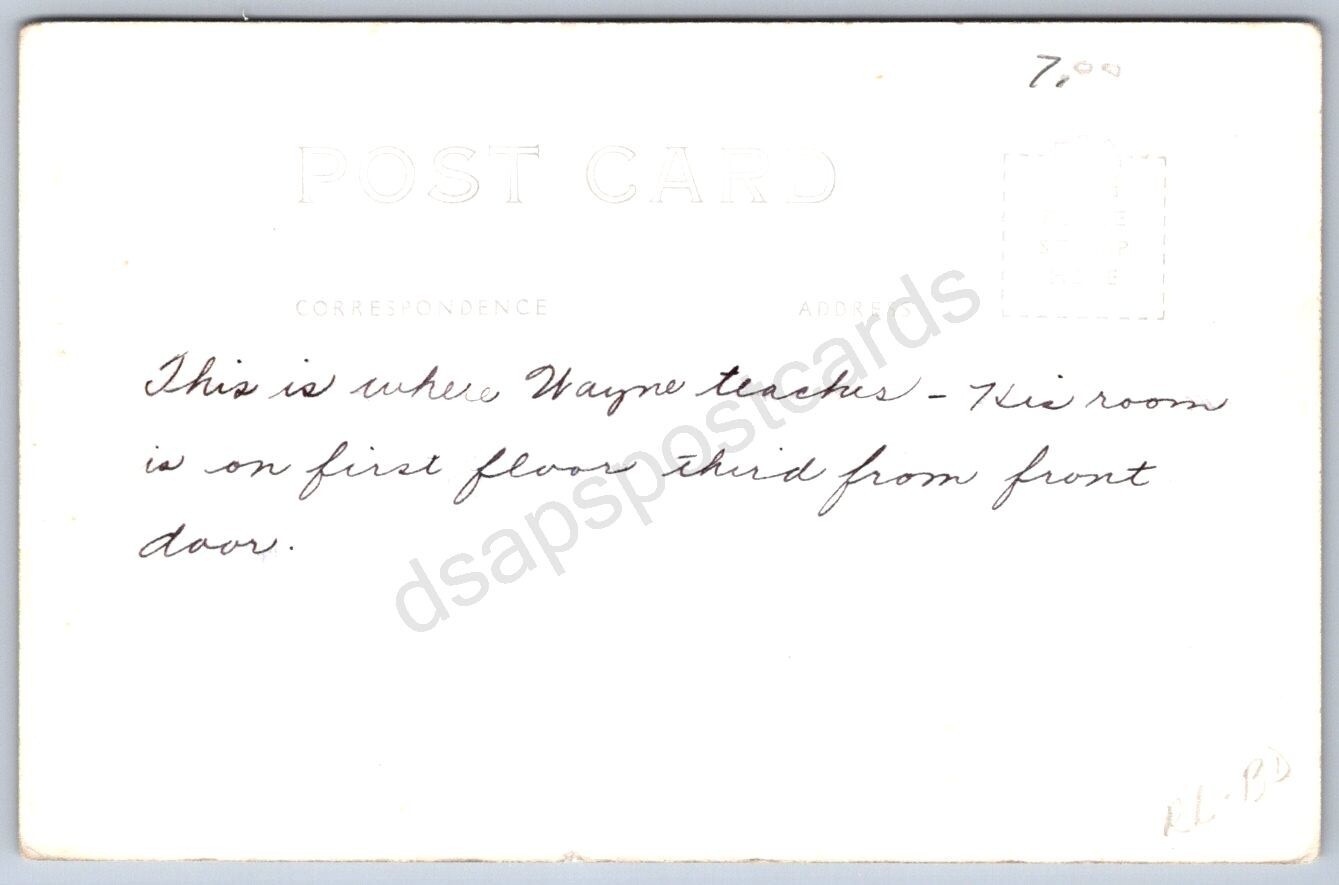 7.00
POST CARD
PLACE
STAMP
HERE
CORRESPONDENCE ADDRESS
This is where Wayne teaches - His room
is on first floor third from front
door.
dsapspostcards
RL-BD